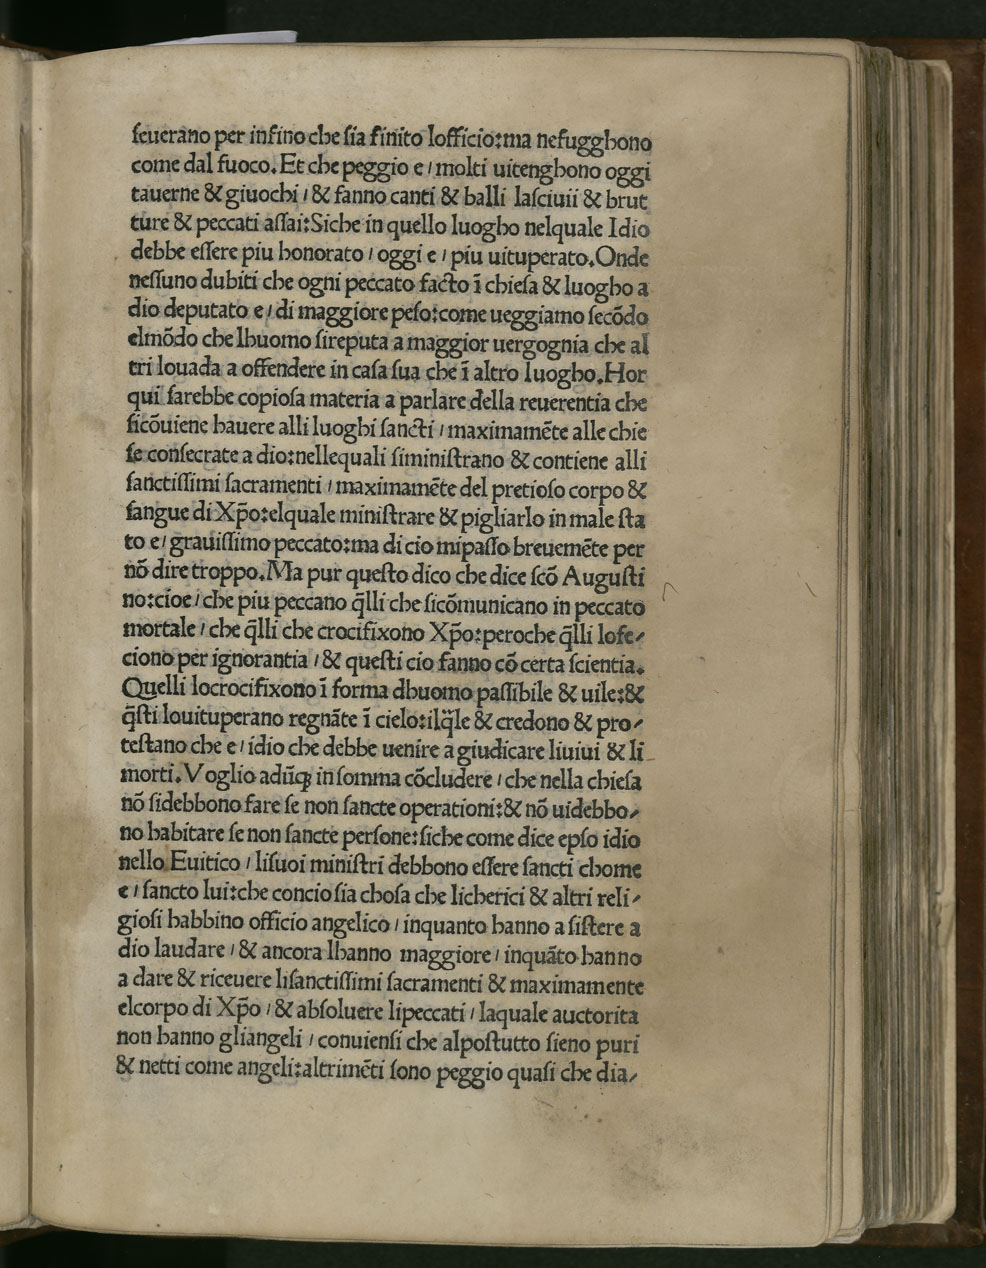 ſeuerano per infino che ſia finito lofficio:ma nefugghono
come dal fuoco.Et che peggio e/molti uitenghono oggi
tauerne & giuochi / & fanno canti & balli laſciuii & brut
ture & peccati aſſai:Siche in quello luogho nelquale Idio
debbe eſſere piu honorato / oggi e / piu uituperato.Onde
neſſuno dubiti che ogni peccato facto ī chieſa & luogho a
dio deputato e/di maggiore peſo:come ueggiamo ſecōdo
elmōdo che lhuomo ſireputa a maggior uergognia che al
tri louada a offendere in caſa ſua che ī altro luogho.Hor
qui ſarebbe copioſa materia a parlare della reuerentia che
ſicōuiene hauere alli luoghi ſancti / maximamēte alle chie
ſe conſecrate a dio:nellequali ſiminiſtrano & contiene alli
ſanctiſſimi ſacramenti / maximamēte del pretioſo corpo &
ſangue di Xp̄o:elquale miniſtrare & pigliarlo in male ſta
to e/grauiſſimo peccato:ma di cio mipaſſo breuemēte per
nō dire troppo.Ma pur queſto dico che dice ſcō Auguſti
no:cioe/che piu peccano q̄lli che ſicōmunicano in peccato
mortale / che q̄lli che crocifixono Xp̄o:peroche q̄lli lofe⸗
ciono per ignorantia / & queſti cio fanno cō certa ſcientia.
Quelli locrocifixono ī forma dhuomo paſſibile & uile:&
q̄ſti louituperano regnāte ī cielo:ilq̄le & credono & pro⸗
teſtano che e/idio che debbe uenire a giudicare liuiui & li
morti.Voglio adūꝗ in ſomma cōcludere / che nella chieſa
nō ſidebbono fare ſe non ſancte operationi:& nō uidebbo⸗
no habitare ſe non ſancte perſone:ſiche come dice epſo idio
nello Euitico / liſuoi miniſtri debbono eſſere ſancti chome
e/ſancto lui:che concio ſia choſa che licherici & altri reli⸗
gioſi habbino officio angelico / inquanto hanno a ſiſtere a
dio laudare / & ancora lhanno maggiore / inquāto hanno
a dare & riceuere liſanctiſſimi ſacramenti & maximamente
elcorpo di Xp̄o / & abſoluere lipeccati / laquale auctorita
non hanno gliangeli / conuienſi che alpoſtutto ſieno puri
& netti come angeli:altrimēti ſono peggio quaſi che dia⸗